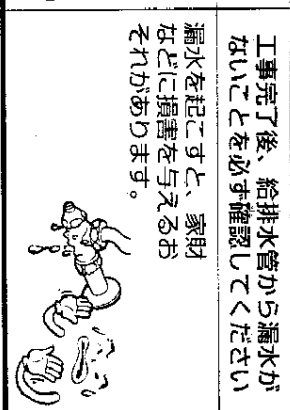 工事完了後、給排水管から漏水が
ないことを必ず確認してください
漏水を起こすと、家財
などに損害を与えるお
それがあります。